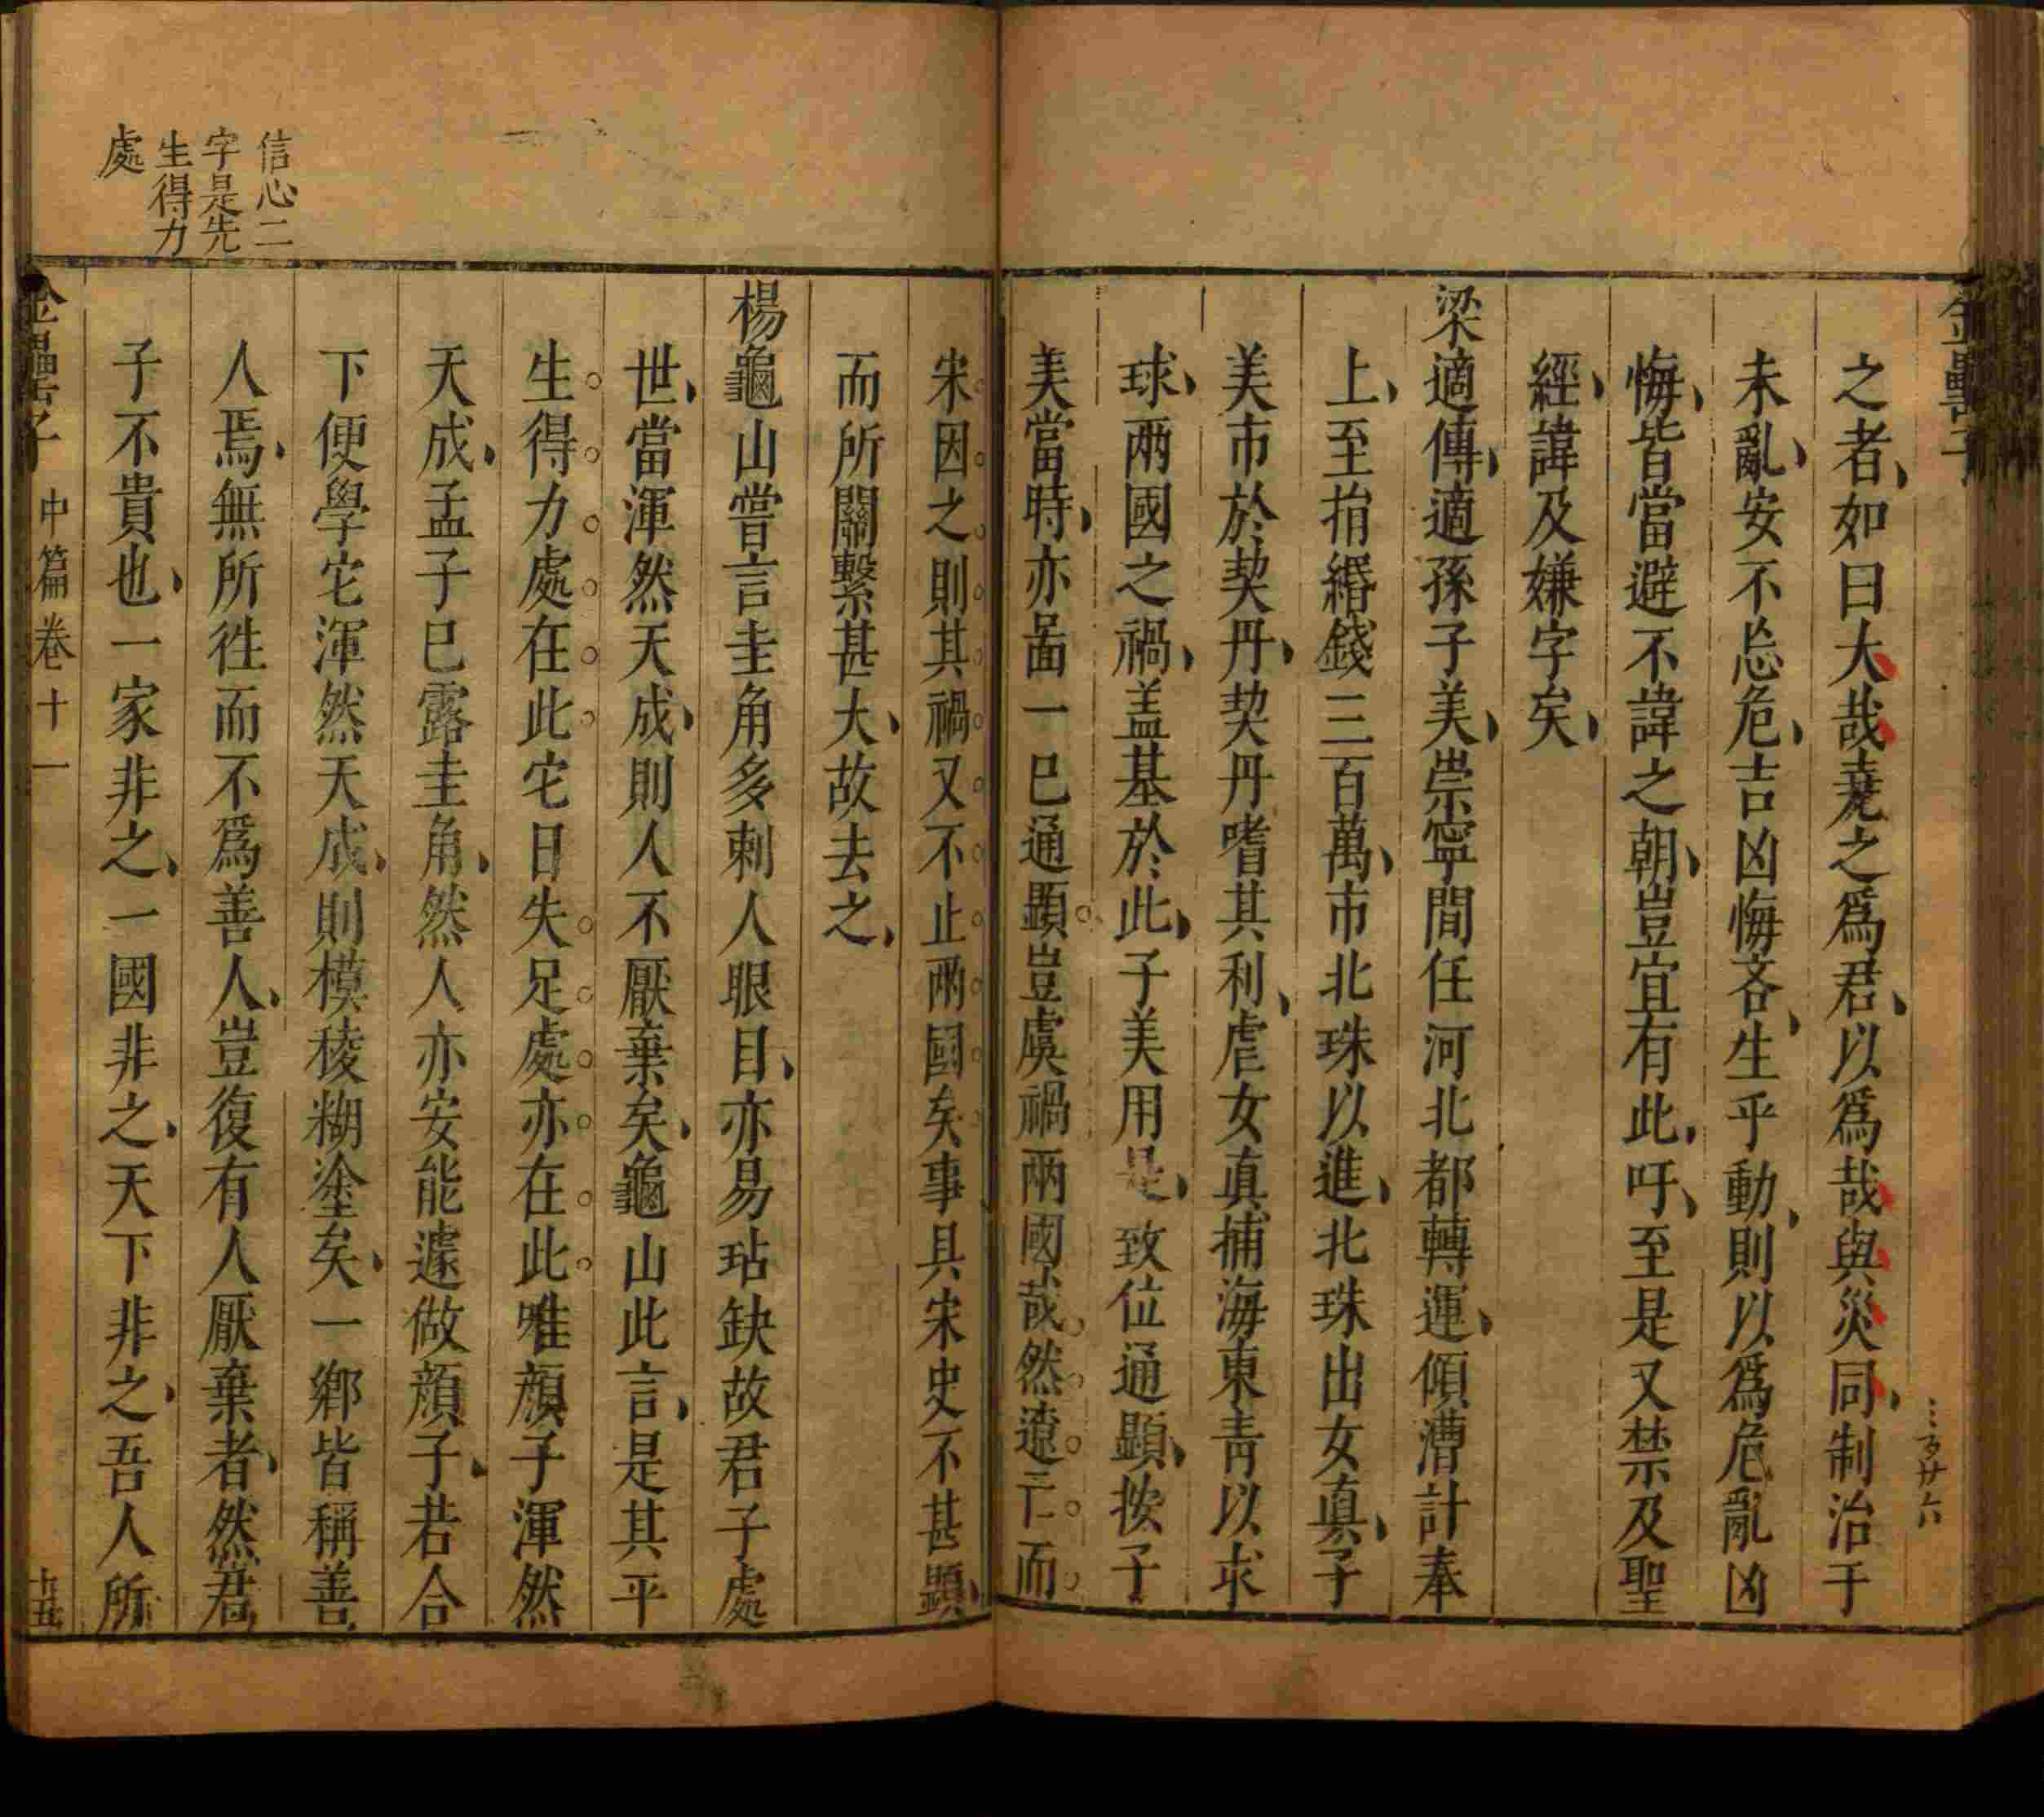 金罍子
之者如曰大哉堯之爲君以爲哉與災同制治于
未亂安不忘危吉凶悔吝生乎動則以爲危亂凶
悔皆當避不諱之朝豈宜有此吁至是又禁及聖
經諱及嫌字矣
梁適傳適孫子美崇寧間任河北都轉運傾漕計奉
上至捐緡錢三百萬市北珠以進北珠出女真子
美市於契丹契丹嗜其利虐女真捕海東青以求
球两國之禍盖基於此子美用是致位通顯按子
美當時亦啚一巳通顯豈虞禍兩國哉然遼亡而
宋因之則其禍又不止兩國矣事具宋史不甚顯
而所關繫甚大故去之
楊龜山嘗言圭角多刺人眼目亦易玷缺故君子處
世當渾然天成則人不厭棄矣龜山此言是其平
生得力處在此宅日失足處亦在此唯顔子渾然
天成孟子巳露圭角然人亦安能遽做顔子若合
下便學宅渾然天成則模稜糊塗矣一鄉皆稱善
人焉無所徃而不爲善人豈復有人厭棄者然君
子不貴也一家非之一國非之天下非之吾人所
信心二
字是先
生得力
處
金罍子 中篇卷十一 十五